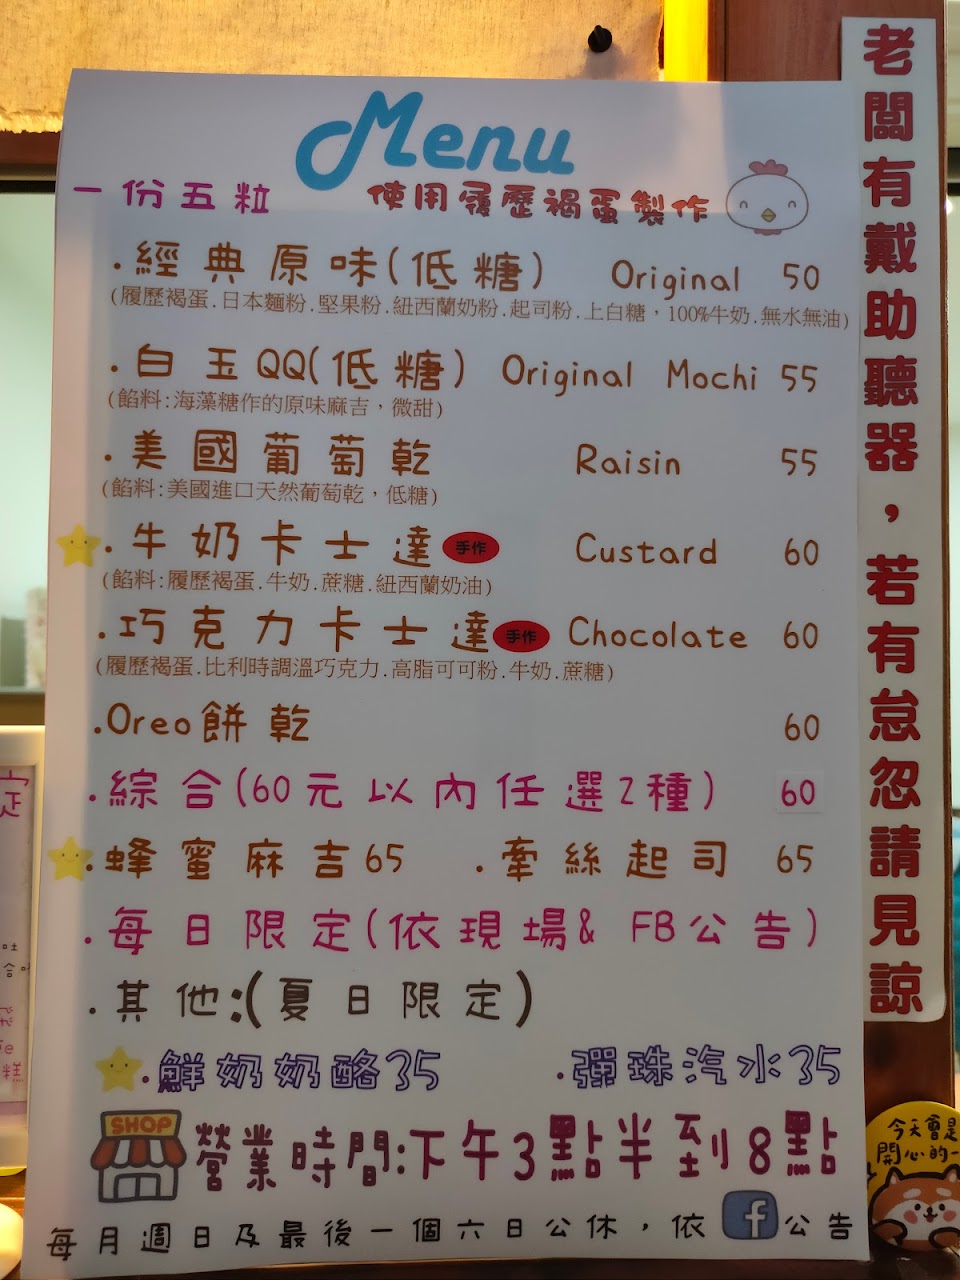 Menu
一份五粒
使用履歷褐蛋製作
.經典原味(低糖) Original 50
(履歷褐蛋.日本麵粉.堅果粉.紐西蘭奶粉.起司粉.上白糖，100%牛奶.無水無油)
.白玉QQ(低糖) Original Mochi 55
(餡料:海藻糖作的原味麻吉，微甜)
.美國葡萄乾 Raisin 55
(餡料:美國進口天然葡萄乾，低糖)
.牛奶卡士達 手作 Custard 60
(餡料:履歷褐蛋.牛奶.蔗糖.紐西蘭奶油)
.巧克力卡士達 手作 Chocolate 60
(履歷褐蛋.比利時調溫巧克力.高脂可可粉.牛奶.蔗糖)
.Oreo餅乾 60
.綜合(60元以內任選2種) 60
.蜂蜜麻吉65 .牽絲起司 65
.每日限定(依現場& FB公告)
.其他:(夏日限定)
.鮮奶奶酪35 .彈珠汽水35
SHOP
營業時間:下午3點半到8點
每月週日及最後一個六日公休，依 f 公告
老闆有戴助聽器，若有怠忽請見諒
今天會是
開心的一